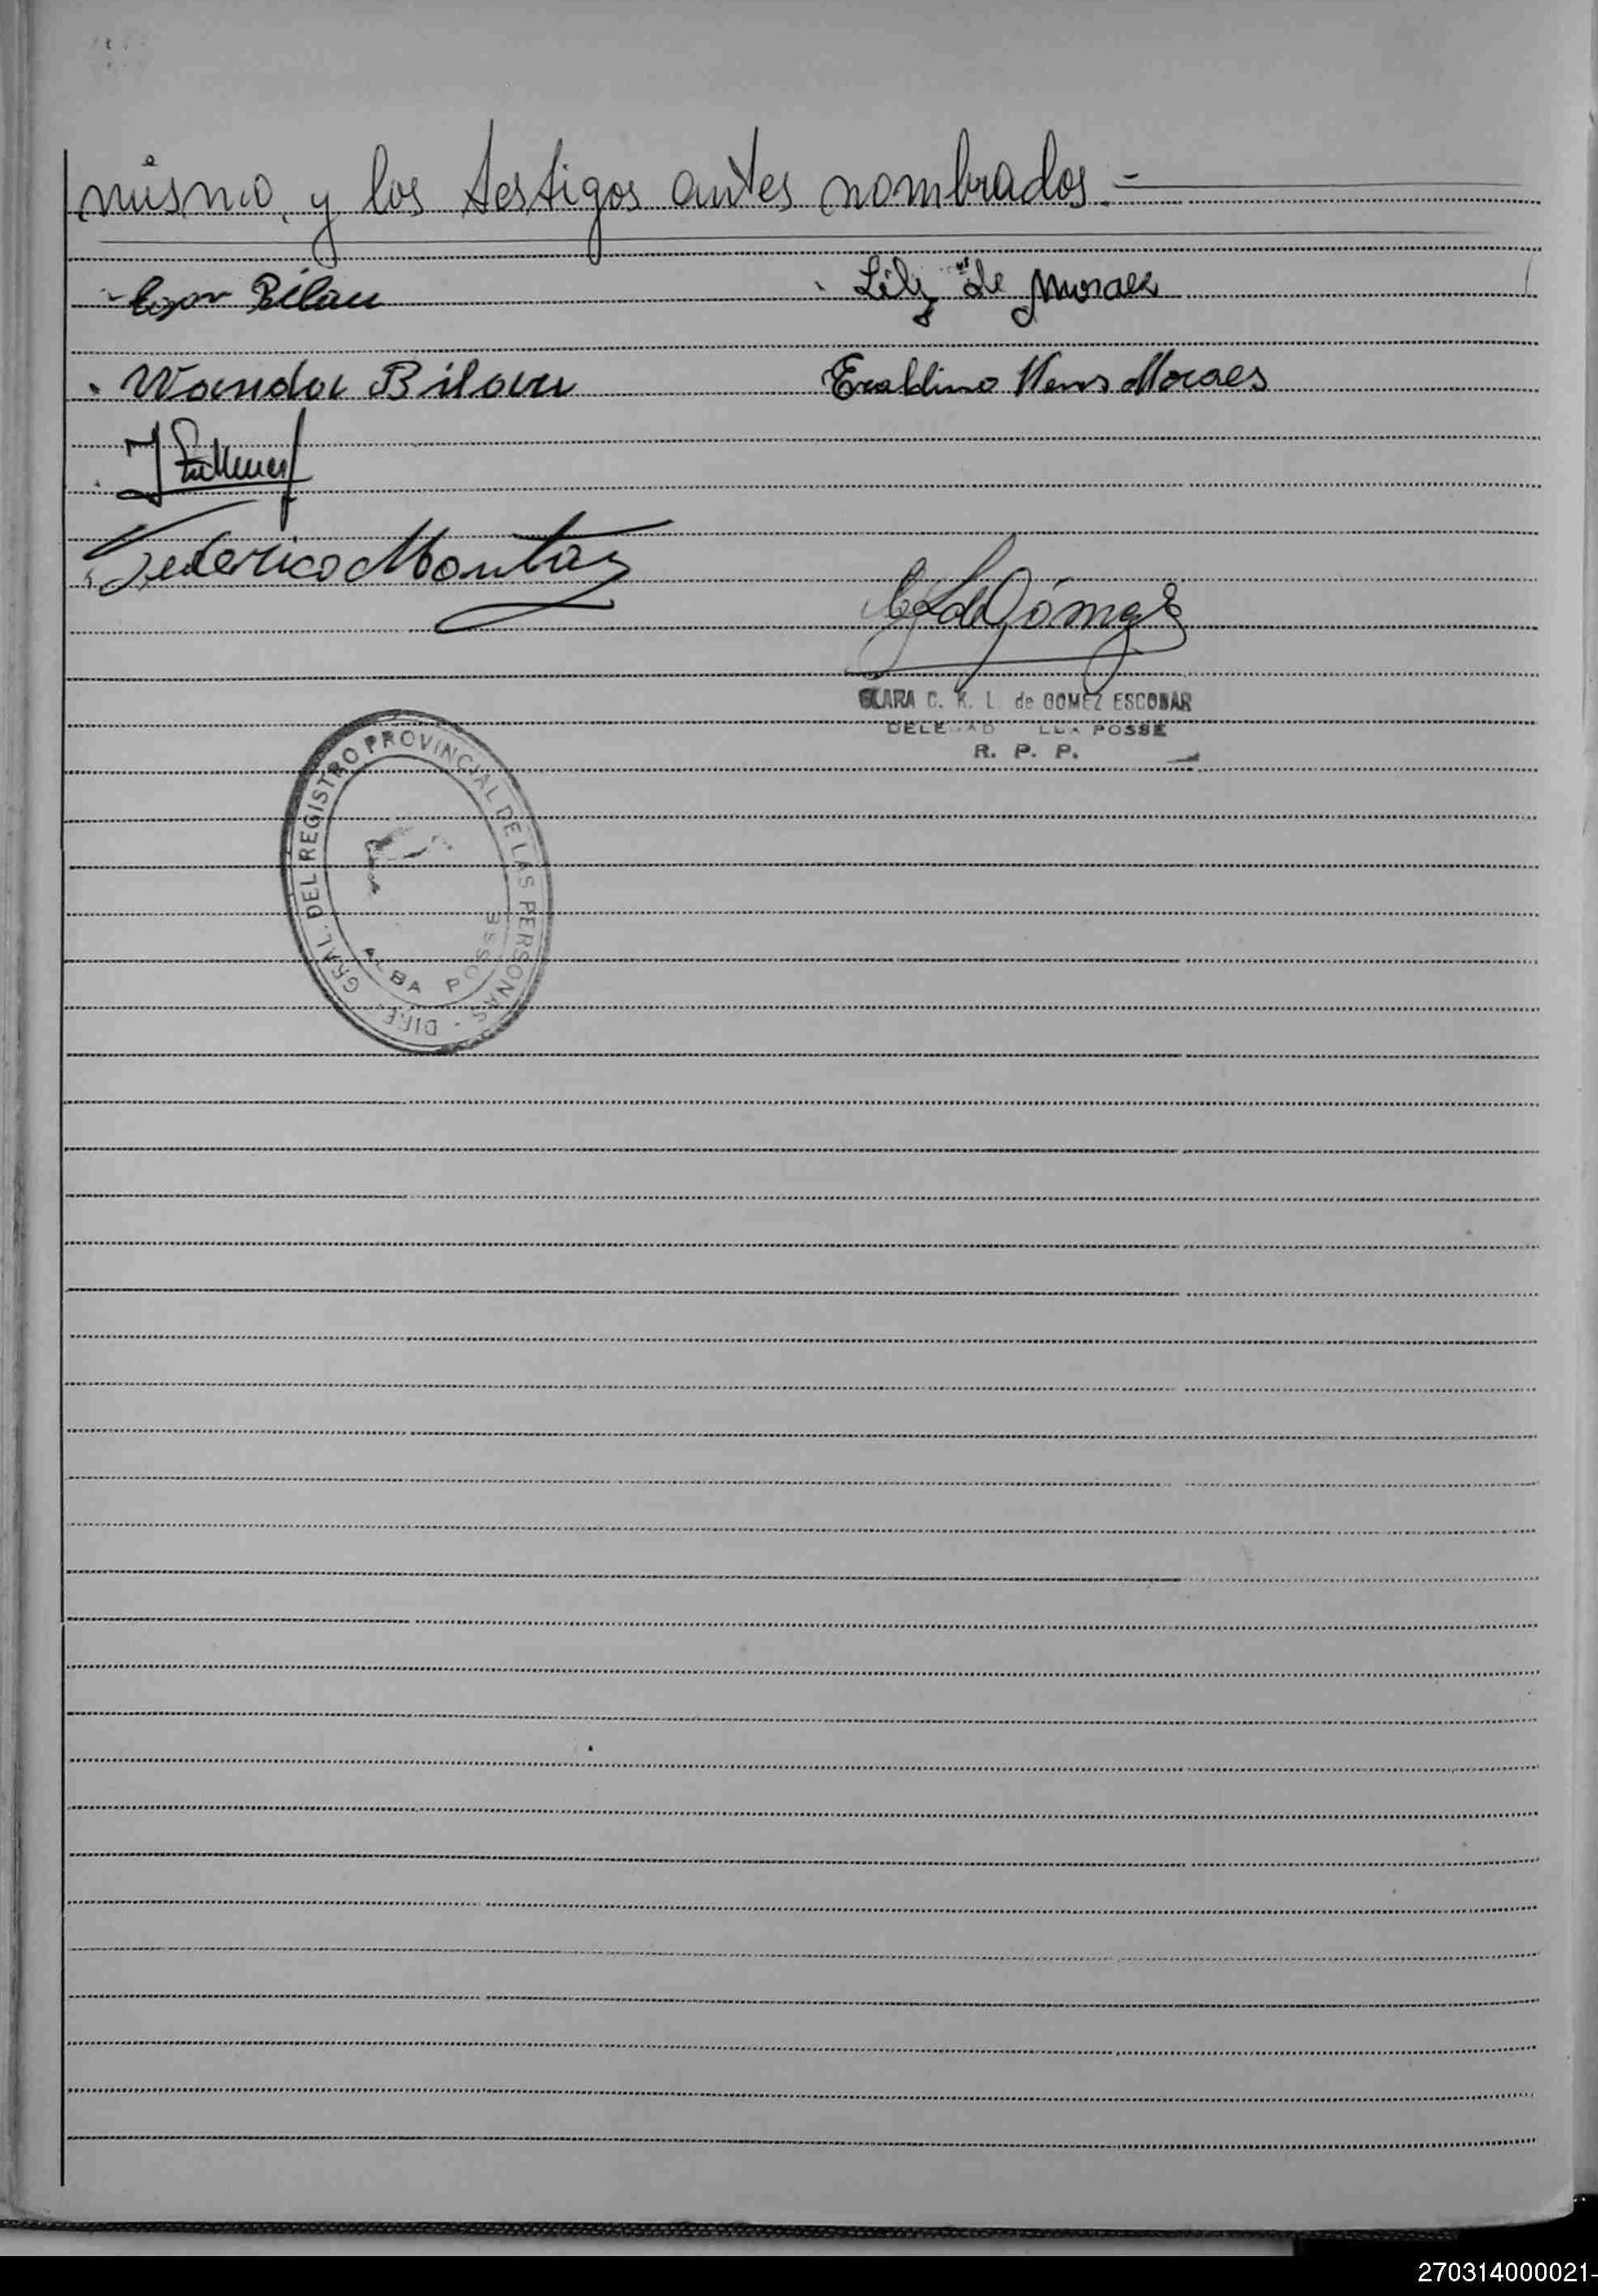 mismo, y los testigos antes nombrados.-
Bilau
Lily de Moraes
Wanda Bilau
Eraldino Moraes
Federico Montaz
de Gómez
CLARA C. K. L. de GOMEZ ESCOBAR
POSSE
R. P. P.
GRAL. DEL REGISTRO PROVINCIAL DE LAS PERSONAS
ALBA POSSE
270314000021-